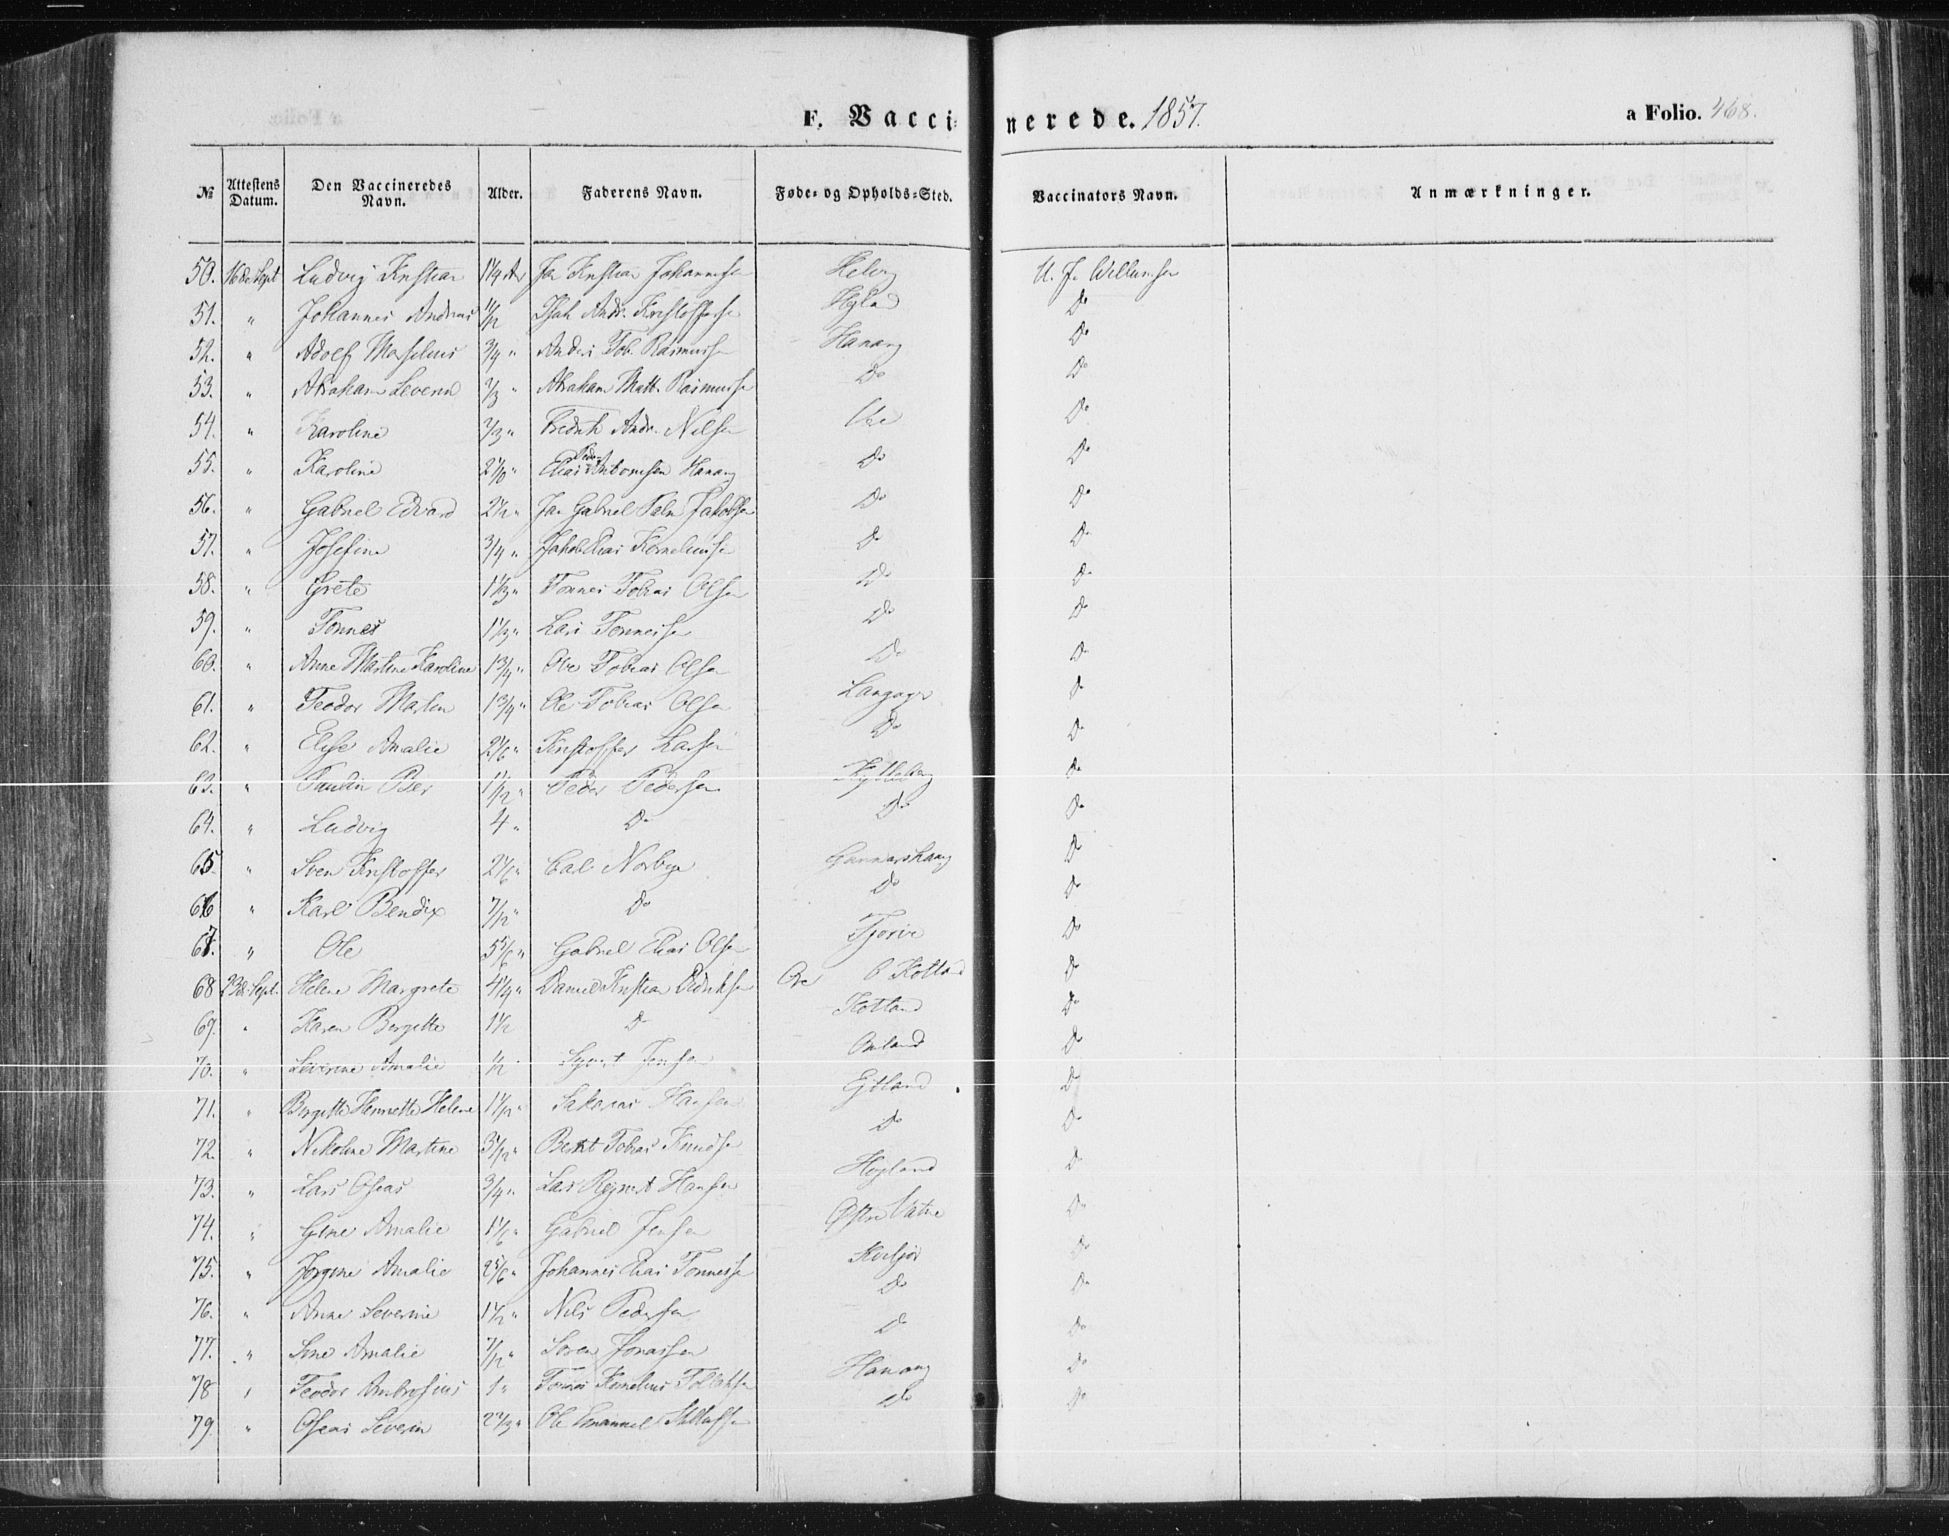 F. Vaccinerede. 1857. a Folio. 468.
№ Attestens Datum. Den Vaccineredes Navn. Alder. Faderens Navn. Føde- og Opholds-Sted. Vaccinators Navn. Anmærkninger.
50. 16de Sept Ludvig Kristian 1 1/4 Aar Jan Kristian Johannesen U. F. Willumsen
51. " Johannes Andreas 11/12 Andr. Kristoffersen Do
52. " Adolf 3/4 " Anders Tob. Rasmussen Hanang Do
53. " Abraham Severin 2/3 " Abraham Matt. Rasmussen Do Do
54. " Karoline 2/3 " Fredrik Andr. Nilsen Ore Do
55. " Karoline Elias Peder Antonisen Hanang Do Do
56. " Gabriel Edvard 2 1/2 " Jan Gabriel Jakobsen Do Do
57. " Josefine 3/4 " Jakob Elias Korneliusen Do Do
58. " Grete 1 1/3 " Tønnes Tobias Olsen Do Do
59. " Tønnes 1 1/3 " Lars Tønnesen Do Do
60. " Anne Martine Karoline 1 3/4 " Ole Tobias Olsen Do Do
61. " Teodor Martin 1 3/4 " Ole Tobias Olsen Langager Do
62. " Elise Amalie 2 1/6 " Kristoffer Larsen Do Do
63. " Paulin Ber 1 1/12 " Peder Pedersen Do
64. " Ludvig 4 " Do Do Do
65. " Sven Kristoffer 2 1/6 " Carl Norbye Gunnarshaug Do
66 " Karl Bendix 7/12 " Do Do Do
67. " Ole 5 5/6 " Gabriel Elias Olsen Tjørve Do
68 23de Sept. Helene Margrete 4 1/4 " Daniel Kristian Didriksen Ore O Kolland Do
69. " Karen Bergitte 1 1/2 Do Kolland Do
70. " Severine Amalie 1/2 Sigvart Jensen Omland Do
71. " Bergitte Henriette Helene 1 1/12 " Sakarias Hansen Ejtland Do
72. " Nikoline Martine 3 1/12 " Bernt Tobias Knudsen Do Do
73. " Lars Oseas 3/4 " Lars Reinert Hansen Høyland Do
74. " Gine Amalie 1 1/6 " Gabriel Jensen Østre Vatne Do
75. " Jørgine Amalie 2 5/6 " Johannes Elias Tønnessen Do
76. " Anne Severine 1 1/2 " Nils Pedersen Do Do
77. " Sine Amalie 7/12 " Søren Jonassen Do Do
78 " Teodor Ambrosius 1 " Tønnes Kornelius Tollaksen Hanang Do
79. " Oseas Severin 2 2/3 " Ole Emanuel Do Do